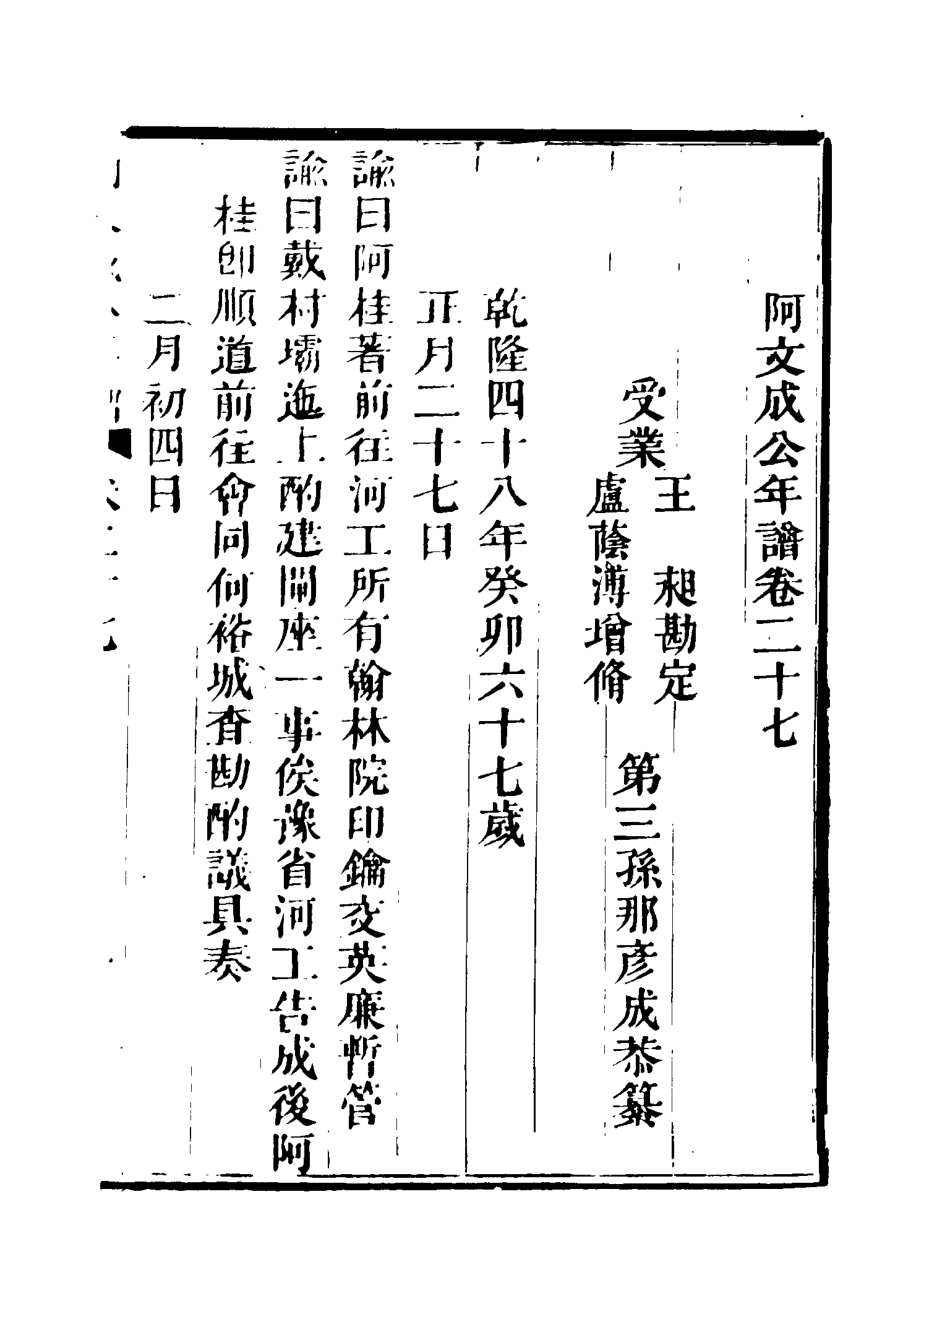 阿文成公年譜卷二十七
第三孫那彥成恭纂
受業
王　昶勘定
盧蔭溥增脩
乾隆四十八年癸卯六十七歲
正月二十七日
諭曰阿桂著前往河工所有翰林院印鑰交英廉暫管
諭曰戴村壩迤上酌建閘座一事俟豫省河工告成後阿
桂卽順道前往會同何裕城查勘酌議具奏
二月初四日